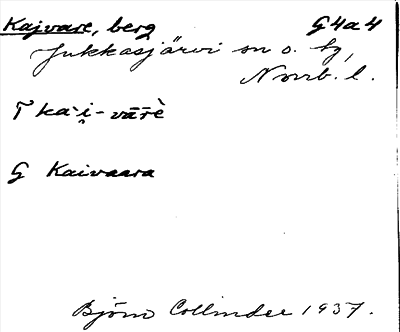 Kajvare, berg G4a4
Jukkasjärvi sn o. tg,
Norrb. l.
T ka·i̯-vā̄rè
G Kaivaara
Björn Collinder 1937.